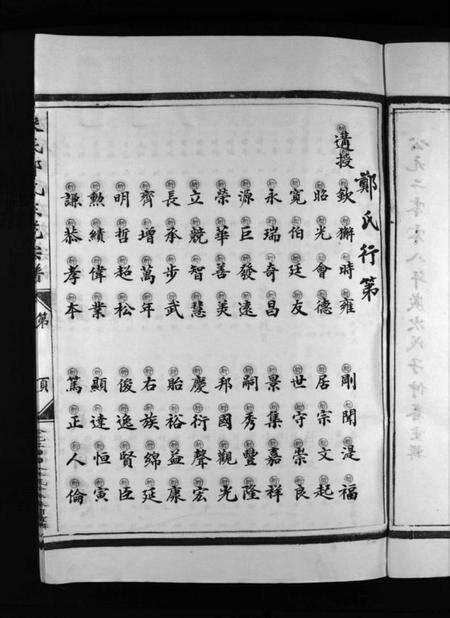 鄭氏行第
遘授
欽獬時雍 剛聞湜福
昭光會德 居宗文起
寬伯廷友 世守崇良
永瑞奇昌 景集嘉祥
源巨發遠 嗣秀豐隆
榮華善美 邦國觀光
立競智慧 慶衍聲宏
長承步武 貽裕益康
齊增萬年 右族綿延
明哲超松 俊逸賢臣
勲績偉業 顯達恒寅
謙恭孝本 篤正人倫
第
頁